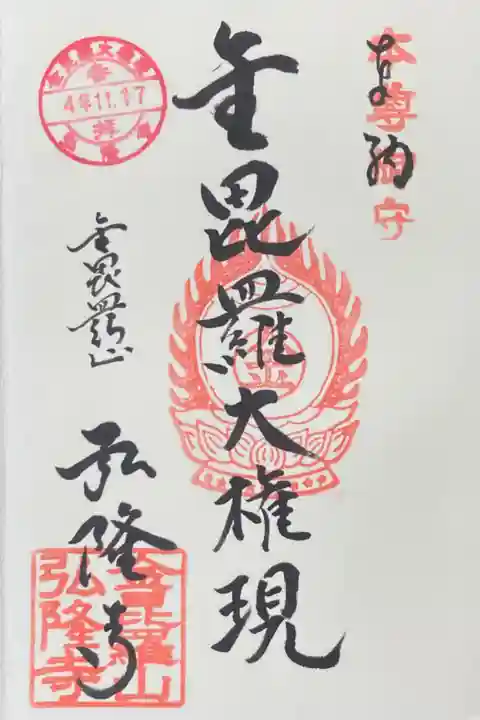 奉納
本尊御守
金毘羅大権現
参拝
4年11.17
金毘羅山
弘隆寺
金毘羅山
弘隆寺